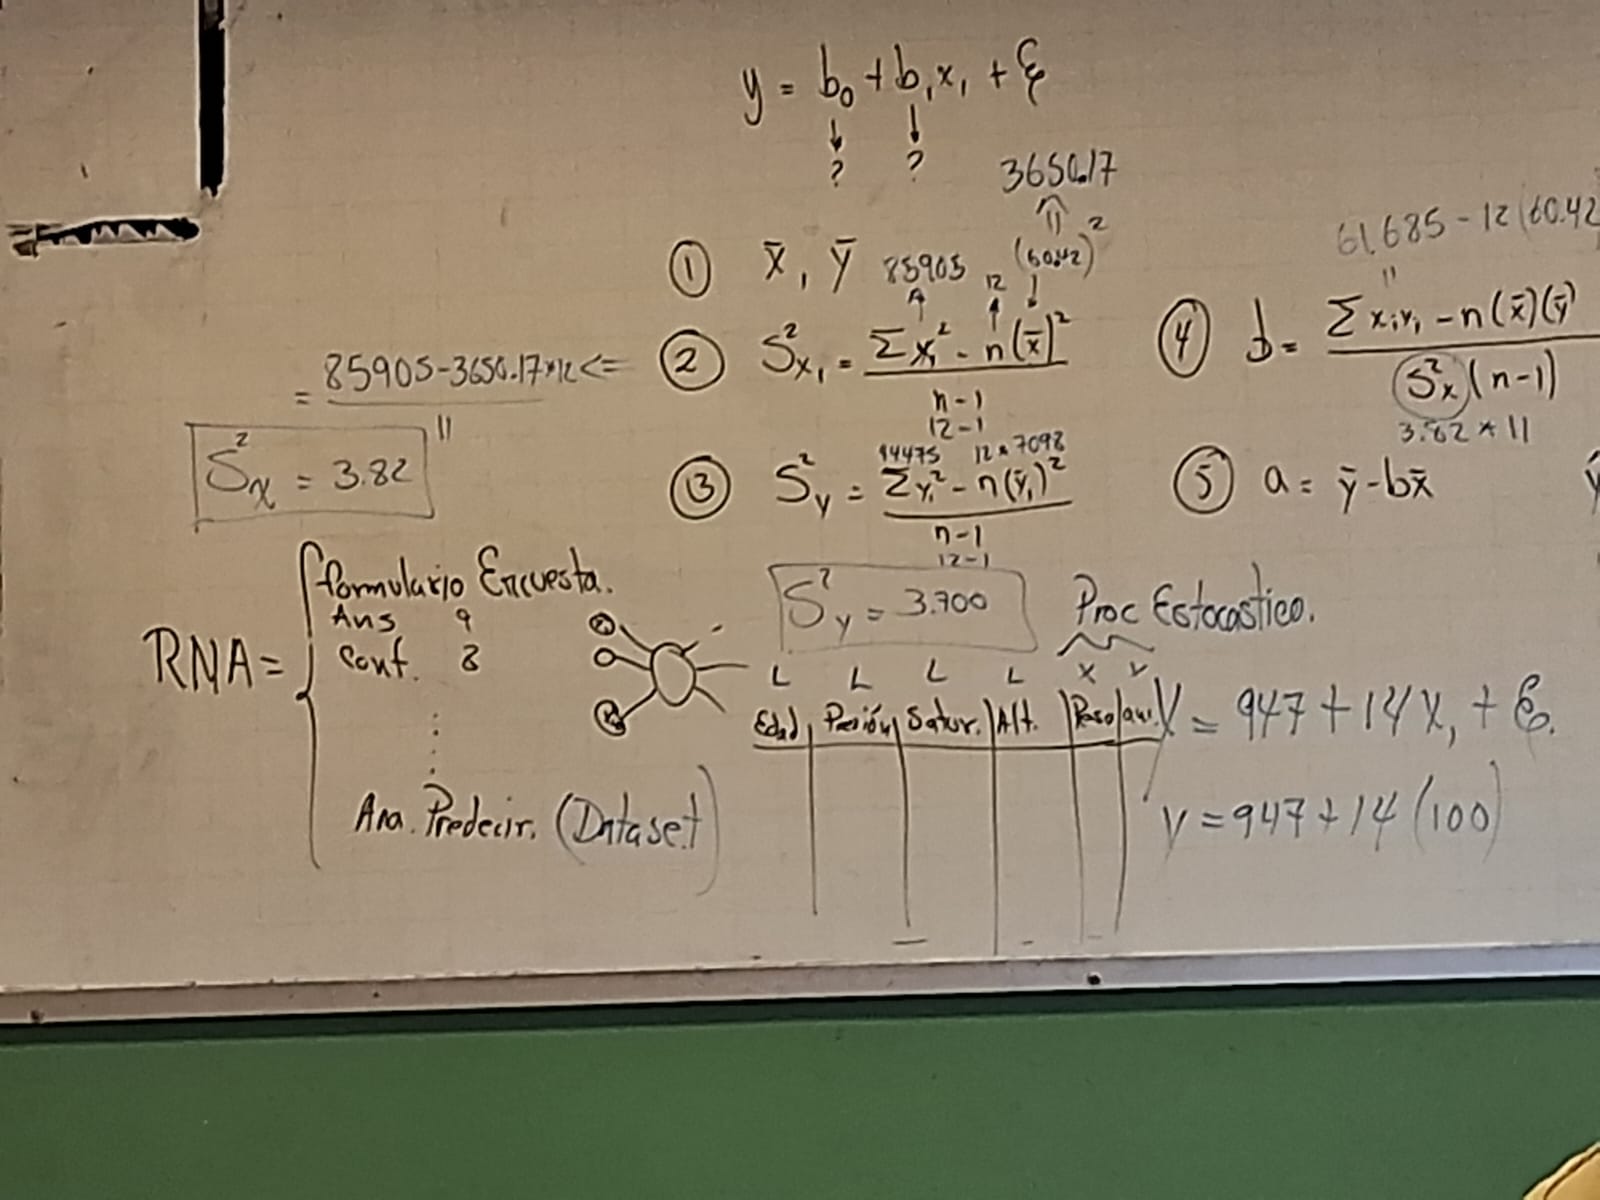 y = b₀ + b₁x₁ + ξ
? ?
3650.17
① x̄, ȳ 85905 12 (60.42)²
② S²x₁ = Σx₁² - n(x̄)² / n-1
12-1
= 85905-3650.17*12 <= / 11
S²x = 3.82
③ S²y = Σy₁² - n(ȳ₁)² / n-1
12*7098
12-1
S²y = 3.700
61,685 - 12(60.42
④ b = Σx₁y₁ - n(x̄)(ȳ) / S²x(n-1)
3.82 * 11
⑤ a = ȳ - bx̄
RNA = { formulario Encuesta.
Ans 9
Conf. 8
Ana. Predecir. (Dataset)
Proc Estocastico.
L L L L x y
Edad Presión Satur. Alt. Peso
Y = 947 + 14X₁ + ξ.
y = 947 + 14 (100)